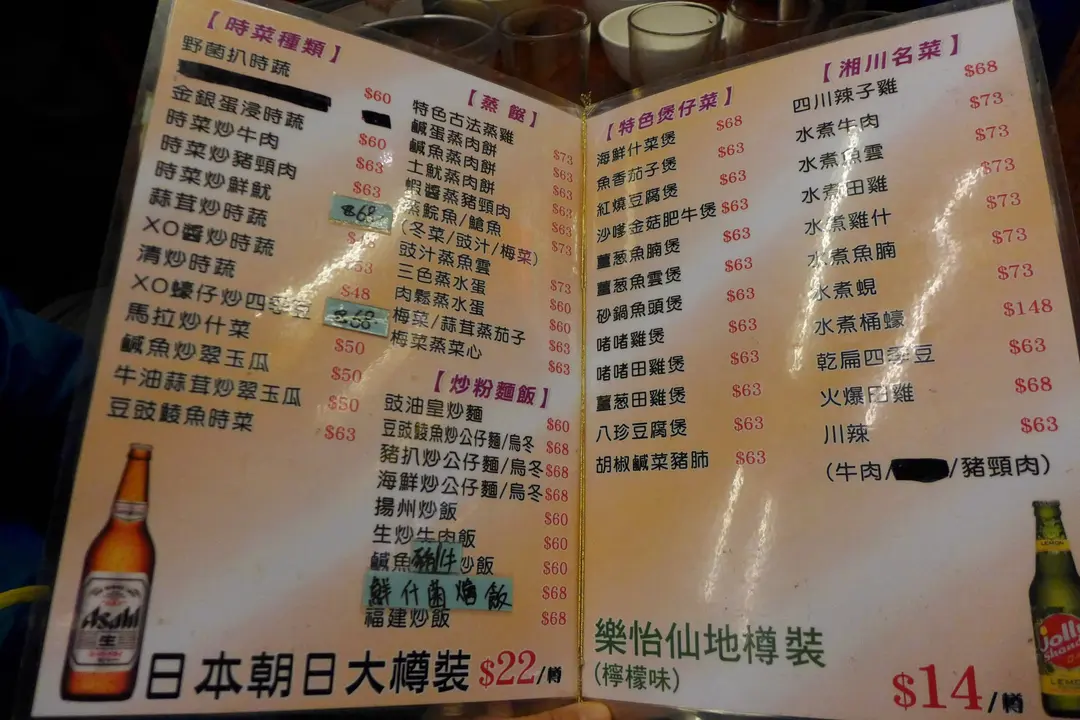 【時菜種類】
野菌扒時蔬 $60
金銀蛋浸時蔬 $60
時菜炒牛肉 $63
時菜炒豬頸肉 $63
時菜炒鮮魷 68
蒜茸炒時蔬 $48
XO醬炒時蔬 $53
清炒時蔬 $48
XO蠔仔炒四季豆 68
馬拉炒什菜 $50
鹹魚炒翠玉瓜 $50
牛油蒜茸炒翠玉瓜 $50
豆豉鯪魚時菜 $63
【蒸餸】
特色古法蒸雞 $73
鹹蛋蒸肉餅 $63
鹹魚蒸肉餅 $63
土魷蒸肉餅 $63
蝦醬蒸豬頸肉 $63
蒸鯇魚/鯧魚 $73
(冬菜/豉汁/梅菜)
豉汁蒸魚雲 $73
三色蒸水蛋 $60
肉鬆蒸水蛋 $60
梅菜/蒜茸蒸茄子 $63
梅菜蒸菜心 $63
【炒粉麵飯】
豉油皇炒麵 $60
豆豉鯪魚炒公仔麵/烏冬 $68
豬扒炒公仔麵/烏冬 $68
海鮮炒公仔麵/烏冬 $68
揚州炒飯 $60
生炒牛肉飯 $60
鹹魚 炒飯 $60
鮮什菌燴飯 $68
福建炒飯 $68
Asahi
生
日本朝日大樽裝 $22/樽
【特色煲仔菜】
海鮮什菜煲 $68
魚香茄子煲 $63
紅燒豆腐煲 $63
沙嗲金菇肥牛煲 $63
薑葱魚腩煲 $63
薑葱魚雲煲 $63
砂鍋魚頭煲 $63
啫啫雞煲 $63
啫啫田雞煲 $63
薑葱田雞煲 $63
八珍豆腐煲 $63
胡椒鹹菜豬肺 $63
【湘川名菜】
四川辣子雞 $68
水煮牛肉 $73
水煮魚雲 $73
水煮田雞 $73
水煮雞什 $73
水煮魚腩 $73
水煮蜆 $73
水煮桶蠔 $148
乾扁四季豆 $63
火爆田雞 $68
川辣 $63
(牛肉/ /豬頸肉)
樂怡仙地樽裝
(檸檬味)
$14/樽
LEMON
Jolly
Shandy
LEMON